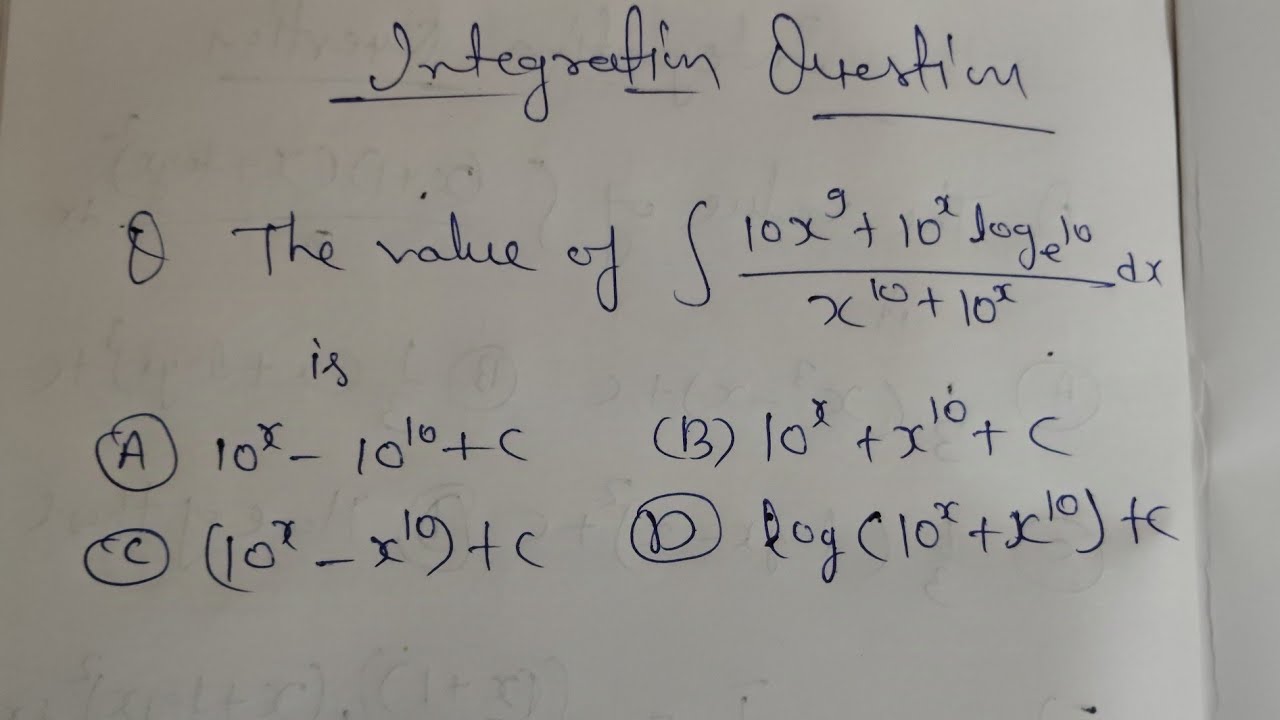 Integration Question
Q The value of ∫ (10x⁹ + 10ˣ logₑ10)/(x¹⁰ + 10ˣ) dx
is
(A) 10ˣ - 10¹⁰ + C (B) 10ˣ + x¹⁰ + C
(C) (10ˣ - x¹⁰) + C (D) log(10ˣ + x¹⁰) + C